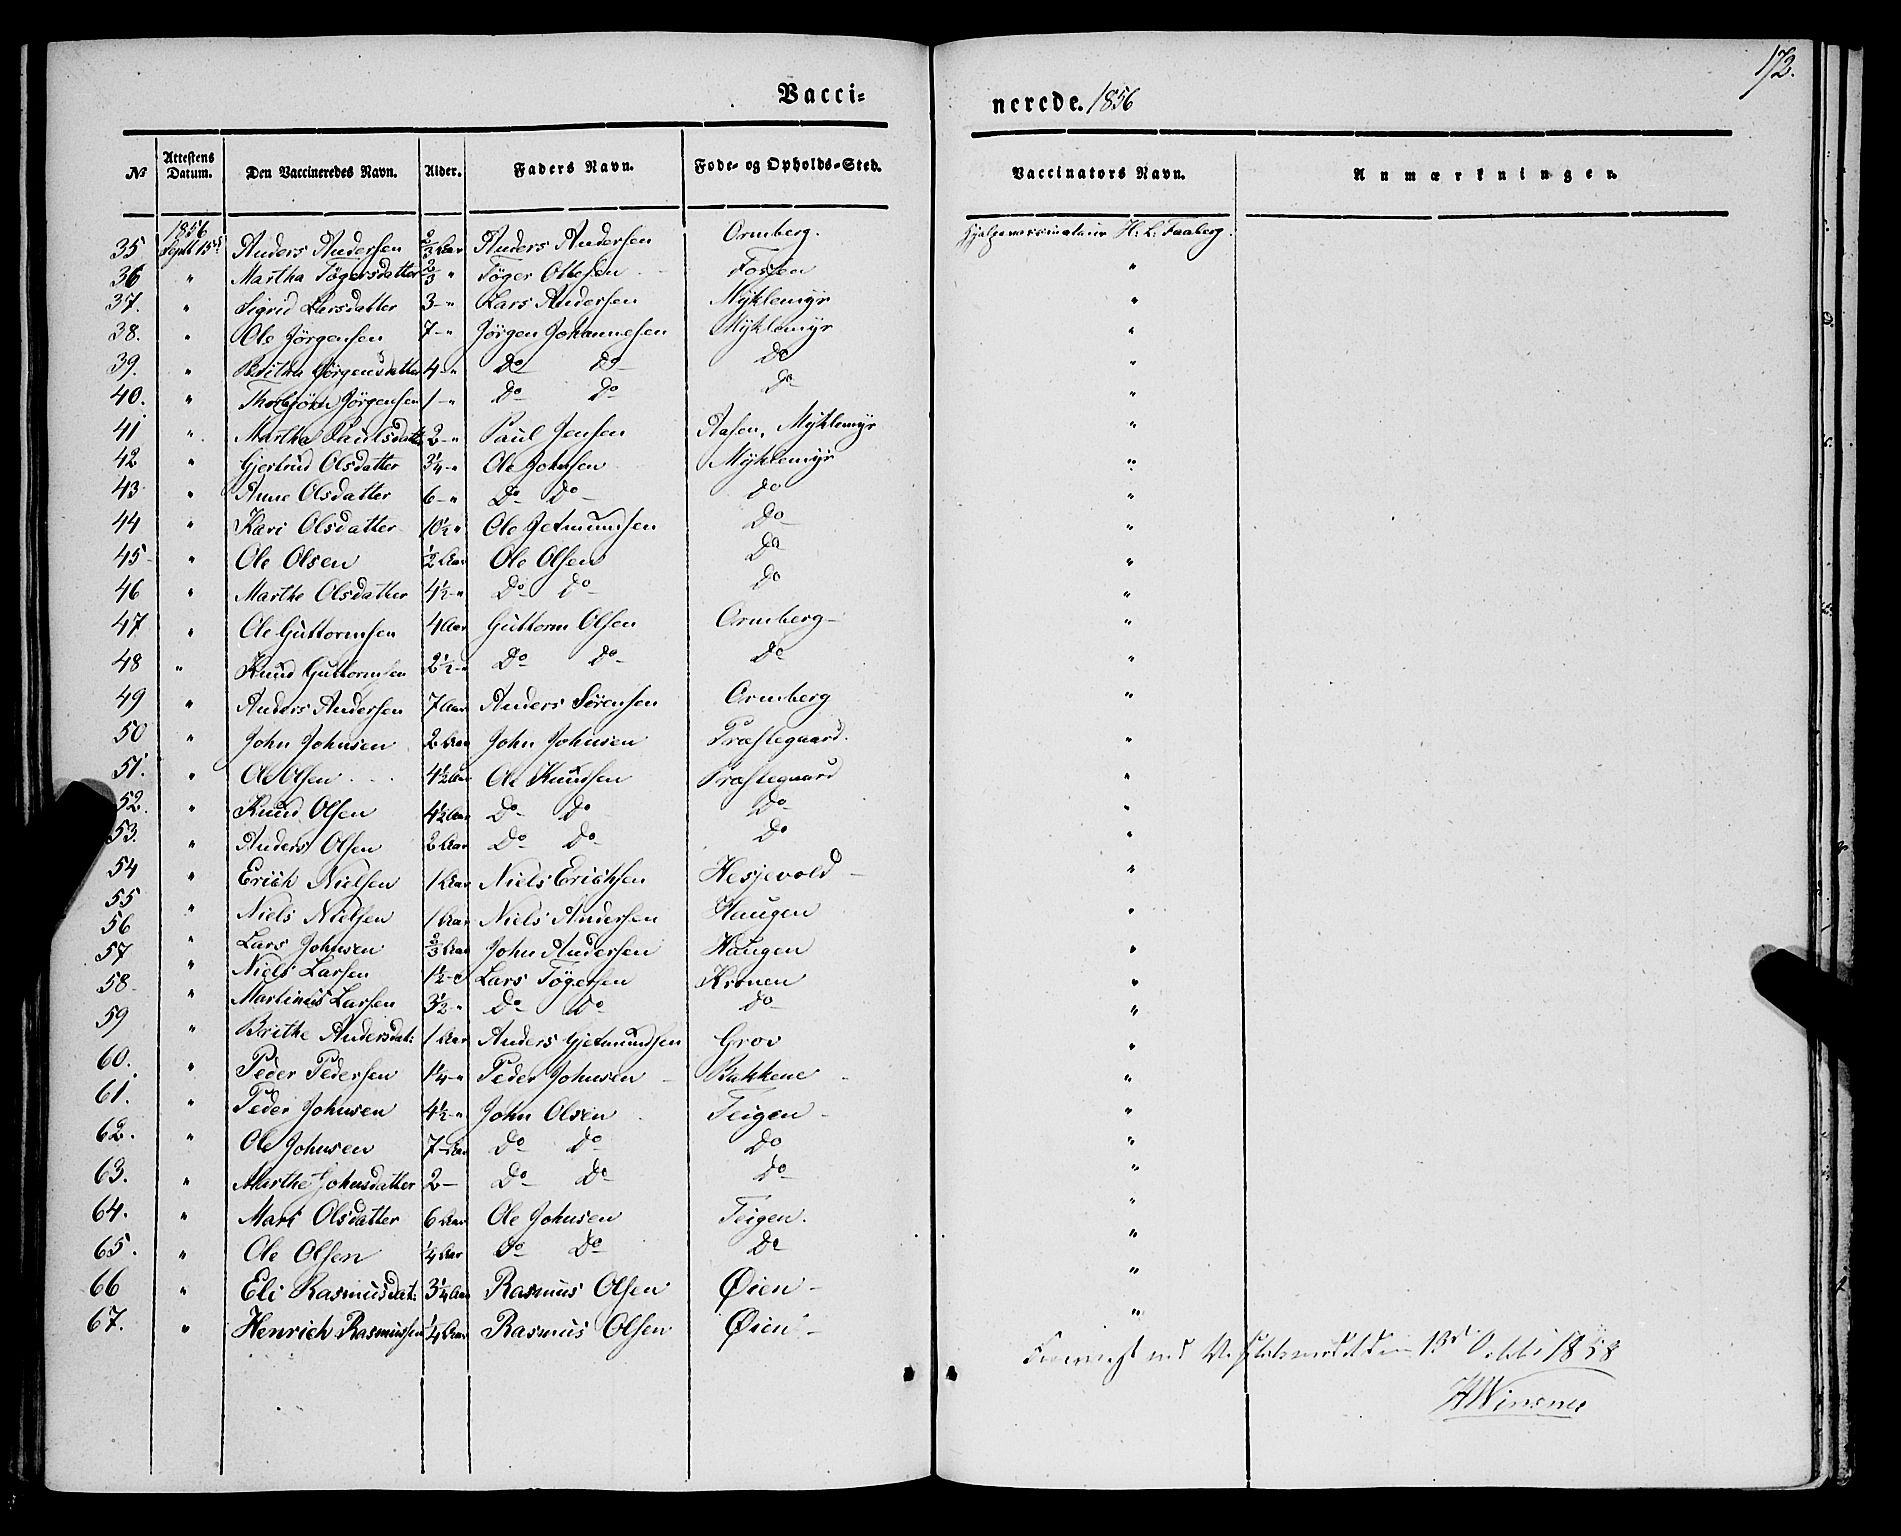 172.
Vacci= nerede. 1856
No Attestens Datum. Den Vaccineredes Navn. Alder. Faders Navn. Føde- og Opholds-Sted. Vaccinators Navn. Anmærkninger.
1856
35 Septb 15de Anders Andersen 2/3 Aar Anders Andersen Ormberg. Hjelpevaccinateur H. L. Faaberg.
36 " Martha Tøgersdatter 2/3 " Tøger Ottesen Fossen "
37. " Sigrid Larsdatter 3 - " Lars Andersen Myklemyr "
38. " Ole Jørgensen 7 - " Jørgen Johannesen Myklemyr "
39. " Britha Jørgensdatter 4 - " Do Do Do "
40. " Thorbjørn Jørgensen 1 - " Do Do Do "
41 " Martha Paulsdatter 2 - " Paul Jensen Aasen, Myklemyr "
42 " Gjertrud Olsdatter 3 1/4 - " Ole Johnsen Myklemyr "
43 " Anne Olsdatter 6 - " Do Do Do "
44 " Kari Olsdatter 10 1/2 " Ole Jetmundsen Do "
45 " Ole Olsen 1/2 Aar Ole Olsen Do "
46 " Marthe Olsdatter 4 1/2 - " Do Do Do "
47 " Ole Guttormsen 4 Aar Guttorm Olsen Ormberg "
48 " Knud Guttormsen 2 1/2 - " Do Do Do "
49 " Anders Andersen 7 Aar Anders Sørensen Ormberg "
50 " John Johnsen 2 Aar John Johnsen Præstegaard. "
51. " Ole Olsen 4 1/2 Aar Ole Knudsen Præstegaard "
52. " Knud Olsen 4 1/2 Aar Do Do Do "
53. " Anders Olsen 2 Aar Do Do Do "
54 " Erich Nielsen 1 Aar Niels Erichsen Hesjevold "
55 " Niels Nielsen 1 Aar Niels Andersen Haugen "
56 " Lars Johnsen 2/3 Aar John Andersen Haugen "
57 " Niels Larsen 1 1/2 - " Lars Tøgersen Kronen "
58 " Martinus Larsen 3 1/2 - " Do Do Do "
59 " Brithe Andersdat: 1 Aar Anders Gjetmundsen Grov "
60. " Peder Pedersen 1 1/4 - " Peder Johnsen Bakkene "
61. " Peder Johnsen 4 1/2 - " John Olsen Teigen "
62. " Ole Johnsen 7 - Aar Do Do Do "
63. " Marthe Johnsdatter 2 - Do Do Do "
64. " Mari Olsdatter 6 Aar Ole Johnsen Teigen. "
65. " Ole Olsen 1/4 Aar Do Do Do "
66 " Eli Rasmusdat: 3 1/4 Aar Rasmus Olsen Øien "
67. " Henrich Rasmussen 1/4 Aar Rasmus Olsen Øien "
13de 1858
HWinsnes